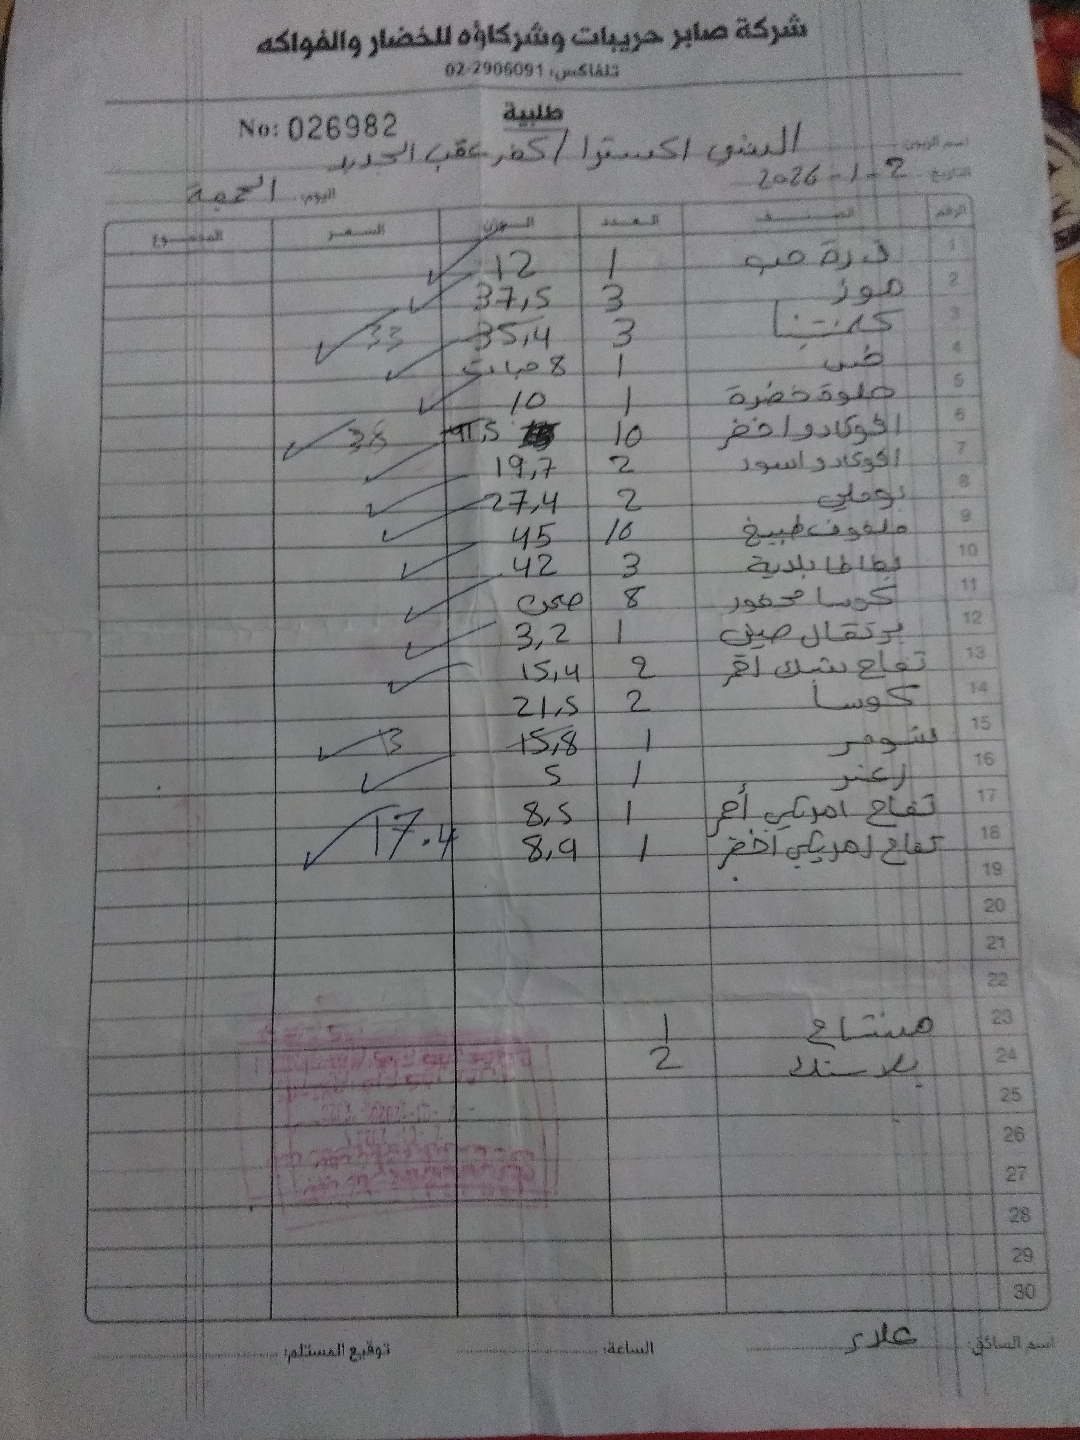 شركة صابر حريبات وشركاؤه للخضار والفواكه
تلفاكس: 02-2906091
طلبية
No: 026982
اسم الزبون: السني اكسترا / كفر عقب الجديد
التاريخ: 2-1-2026
اليوم: الجمعة
الرقم الصنف العدد الوزن السعر المجموع
1 ذرة حب 1 12
2 موز 3 37,5
3 كلمنتينا 3 35,4 33
4 خس 1 8 حبات
5 حلوة خضرة 1 10
6 افوكادو اخضر 10 41,5 38
7 افوكادو اسود 2 19,7
8 بوملي 2 27,4
9 ملفوف طبيخ 10 45
10 بطاطا بلدية 3 42
11 كوسا محفور 8 صحن
12 برتقال صيني 1 3,2
13 تفاح بنك 2 15,4
14 كوسا 2 21,5
15 شومر 1 15,8 13
16 زعتر 1 5
17 تفاح امريكي أحمر 1 8,5
18 تفاح امريكي اخضر 1 8,9 17.4
19
20
21
22
23 مشتاح 1
24 بلاستك 2
25
26
27
28
29
30
اسم السائق: علاء
الساعة:
توقيع المستلم: